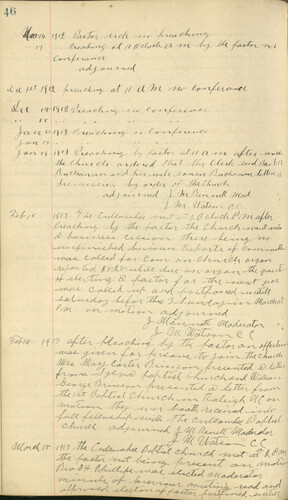 46
Nov 16 1912 Pastor sick no preaching
" 17 " Preaching at 11 O clock A M by the pastor no
Conferance
adjourned
Dec 1st 1912 preaching at 11 A M no conferance
Dec 14 1912 Preaching no conference
" 15 " " " "
Jan 1913 Preaching no Conference
Jan " " " "
Jan 19 1913 Preaching by Pastor at 11 a m after which
the church ordered that the clerk send
Buchannan and his wife Buchannan letters of
Dismission by order of the Church
adjourned J M Bennett Mod
J M Watson C C
Feb, 15 1913 The Cullowhee met at 2 o clock P m after
Preaching by the pastor the Church went into
a business cession there being no
unfinished business Reports of Committe
was called for Com on Church organ
reported still due on organ the question
of electing a pastor for the next year
was called up and postponed untill
saturday before the 3 sunday in March at
P M on motion adjourned
J M Bennett Moderator
J M Watson C C
Feb 16 1913 after pleaching by the pastor an oppertunity
was given for persons to join the Church
Mrs Mary Carter Brinson presented a letter
from Baptist church and Wilson
George Brinson presented a letter from
the 1st Baptist Church in Raleigh NC on
motion they were both received into
full fellowship with the Cullowhee Baptist
Church adjourned J M Bennett Moderator
J M Watson C C
March 15 1913 The Cullowhee Baptist church met at 2 P m
the pastor not being present on motion
Bro Phillips was elected moderator
minuets of previous meeting read and
approved election of pastor postponed untill